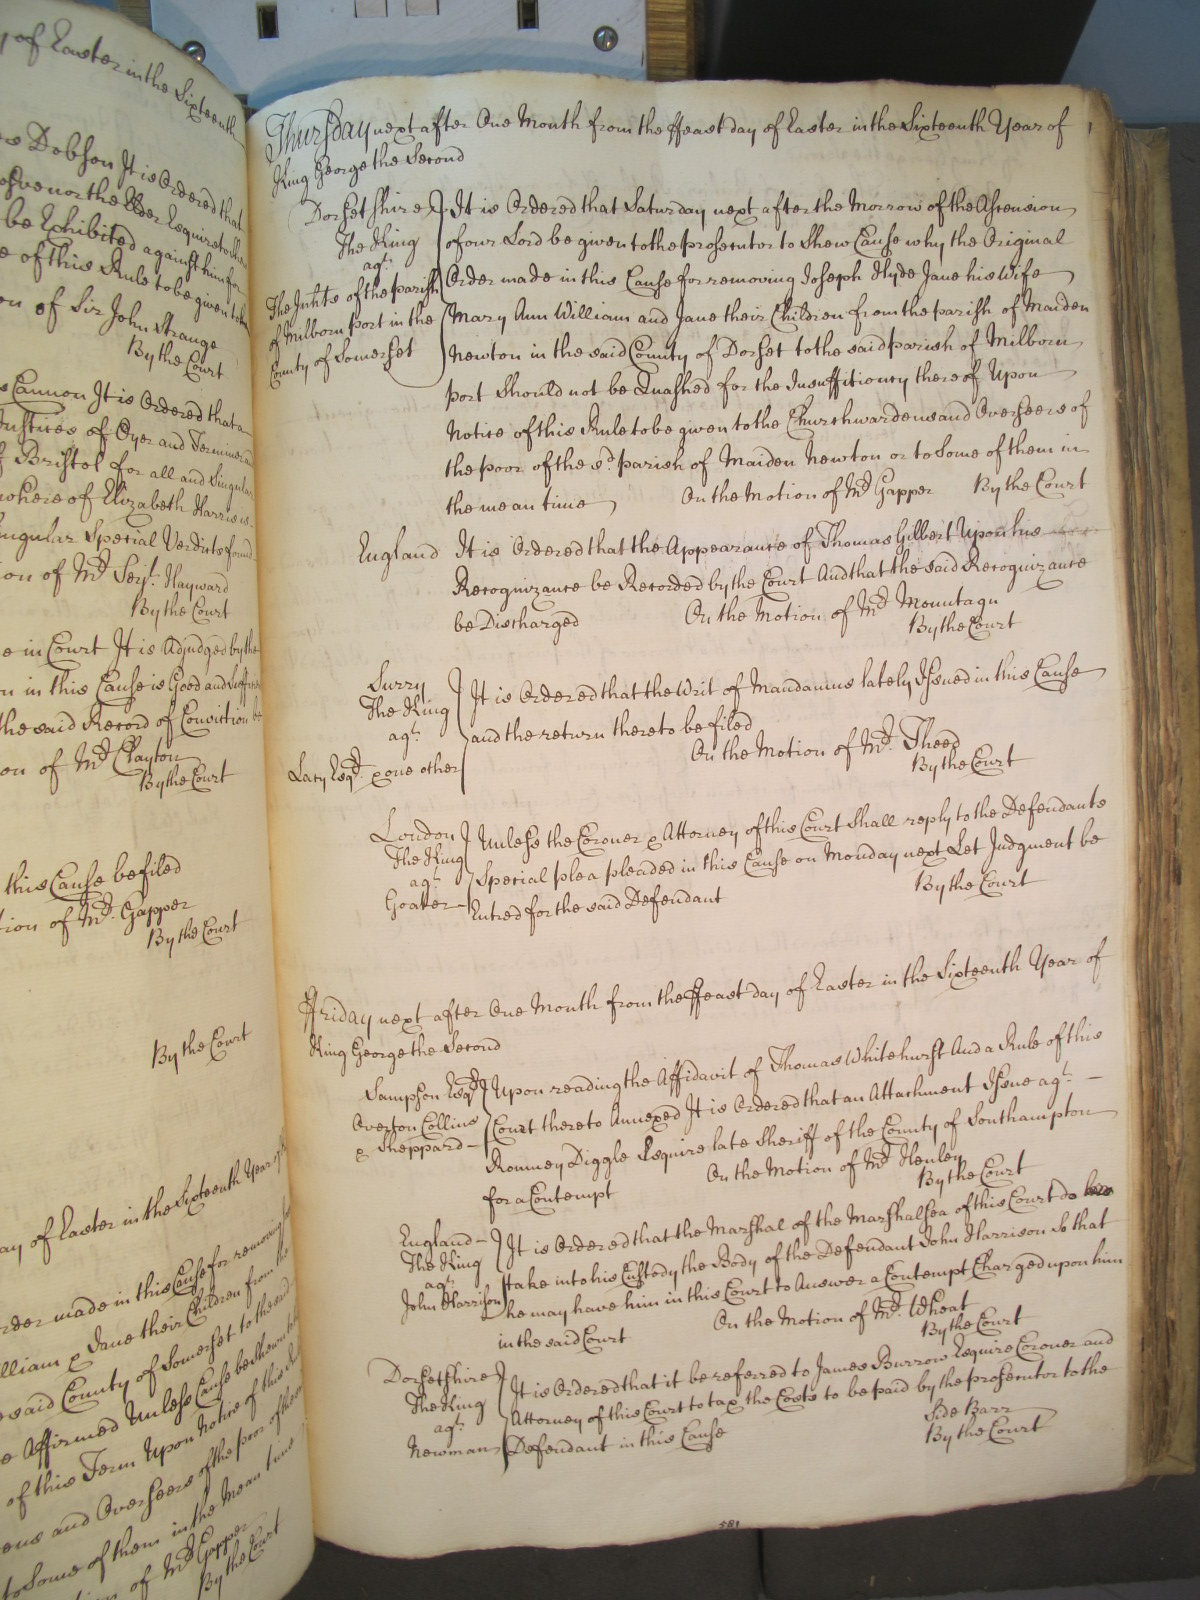 y of Easter in the Sixteenth
es Dobson It is Ordered that
be Exhibited against him for
e of this Rule to be given to him
on of Sir John Strange
By the Court
s Cannon It is Ordered that a
Justices of Oyer and Terminer
f Bristol for all and Singular
where of Elizabeth Harris is
ingular Special Verdicts found
ion of Mr. Serjt. Hayward
By the Court
e in Court It is Adjudged by the
n in this Cause is Good and Suffi
the said Record of Conviction be
on of Mr. Clayton
By the Court
this Cause be filed
tion of Mr. Gapper
By the Court
By the Court
ay of Easter in the Sixteenth Year of
rder made in this Cause for removing
illiam & Jane their Children from the
e said County of Somerset to the said
e Affirmed Unless Cause be shewn
of this Term Upon Notice of this Rule
ens and Overseers of the poor of the
to Some of them in the Mean time
of Mr. Gapper
By the Court
Thursday next after One Month from the ffeast day of Easter in the Sixteenth Year of
King George the Second
Dorsetshire It is Ordered that Saturday next after the Morrow of the Ascension
The King of our Lord be given to the prosecutor to Shew Cause why the Original
agt. Order made in this Cause for removing Joseph Hyde Jane his Wife
The Inhts of the parish Mary Ann William and Jane their Children from the parish of Maiden
of Milborn port in the Newton in the said County of Dorset to the said parish of Milborn
County of Somerset port Should not be Quashed for the Insufficiency thereof Upon
Notice of this Rule to be given to the Churchwardens and Overseers of
the poor of the sd. parish of Maiden Newton or to Some of them in
the mean time On the Motion of Mr. Gapper By the Court
England It is Ordered that the Appearance of Thomas Gilbert Upon his
Recognizance be Recorded by the Court And that the said Recognizance
be Discharged On the Motion of Mr. Mountagu
By the Court
Surry
The King It is Ordered that the Writ of Mandamus lately Issued in this Cause
agt. and the return thereto be filed
Lacy Esqr. & one other On the Motion of Mr. Theed
By the Court
London Unless the Coroner & Attorney of this Court Shall reply to the Defendants
The King Special plea pleaded in this Cause on Monday next Let Judgment be
agt.
Goater Entred for the said Defendant By the Court
ffriday next after One Month from the ffeast day of Easter in the Sixteenth Year of
King George the Second
Sampson Esqr. Upon reading the Affidavit of Thomas Whitehurst And a Rule of this
Overton Collins Court thereto Annexed It is Ordered that an Attachment Issue agt.
& Sheppard Romney Diggle Esquire late Sheriff of the County of Southampton
for a Contempt On the Motion of Mr. Henley
By the Court
England It is Ordered that the Marshal of the Marshalsea of this Court do
The King take into his Custody the Body of the Defendant John Harrison so that
agt.
John Harrison he may have him in this Court to Answer a Contempt Charged upon him
in the said Court On the Motion of Mr. Wheat
By the Court
Dorsetshire It is Ordered that it be referred to James Burrow Esquire Coroner and
The King Attorney of this Court to tax the Costs to be paid by the prosecutor to the
agt.
Newman Defendant in this Cause Side Barr
By the Court
581